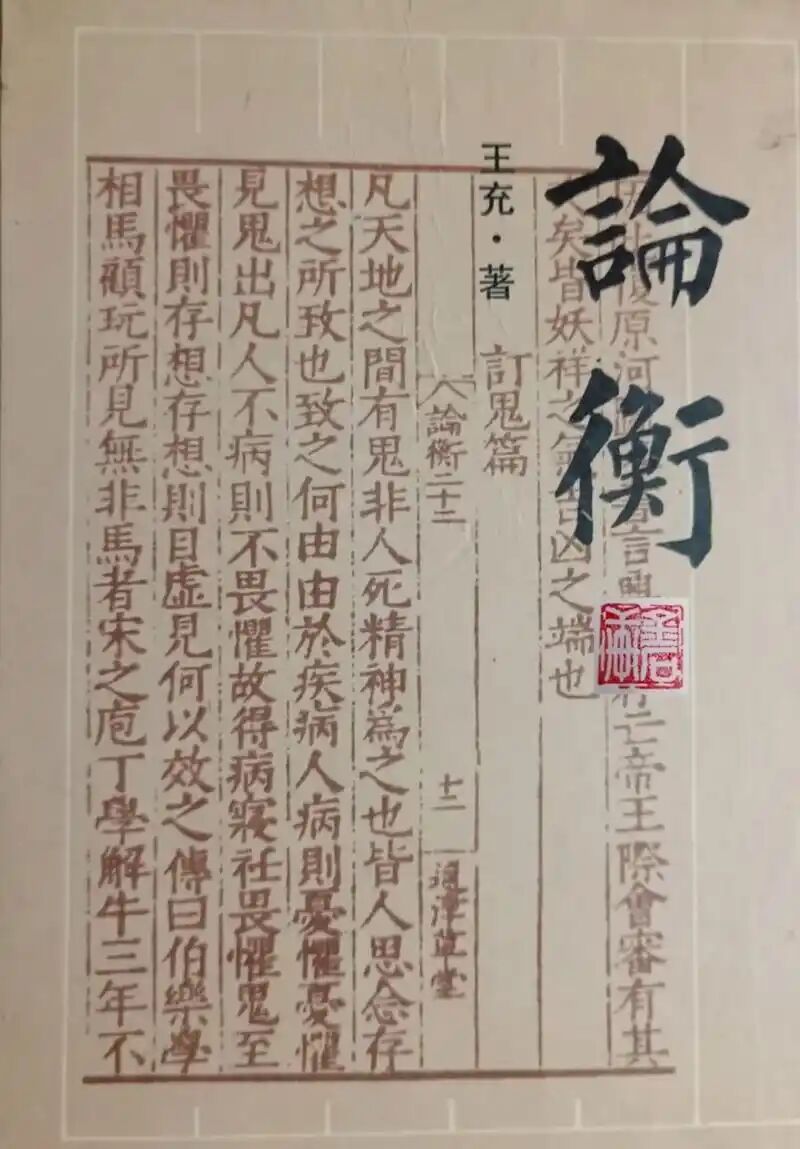 論衡
王充·著
復原河言亡帝王際會審有其
矣皆妖祥之氣吉凶之端也
訂鬼篇
論衡二十二
十二
通津草堂
凡天地之間有鬼非人死精神爲之也皆人思念存
想之所致也致之何由由於疾病人病則憂懼憂懼
見鬼出凡人不病則不畏懼故得病寢衽畏懼鬼至
畏懼則存想存想則目虛見何以效之傳曰伯樂學
相馬顧玩所見無非馬者宋之庖丁學解牛三年不